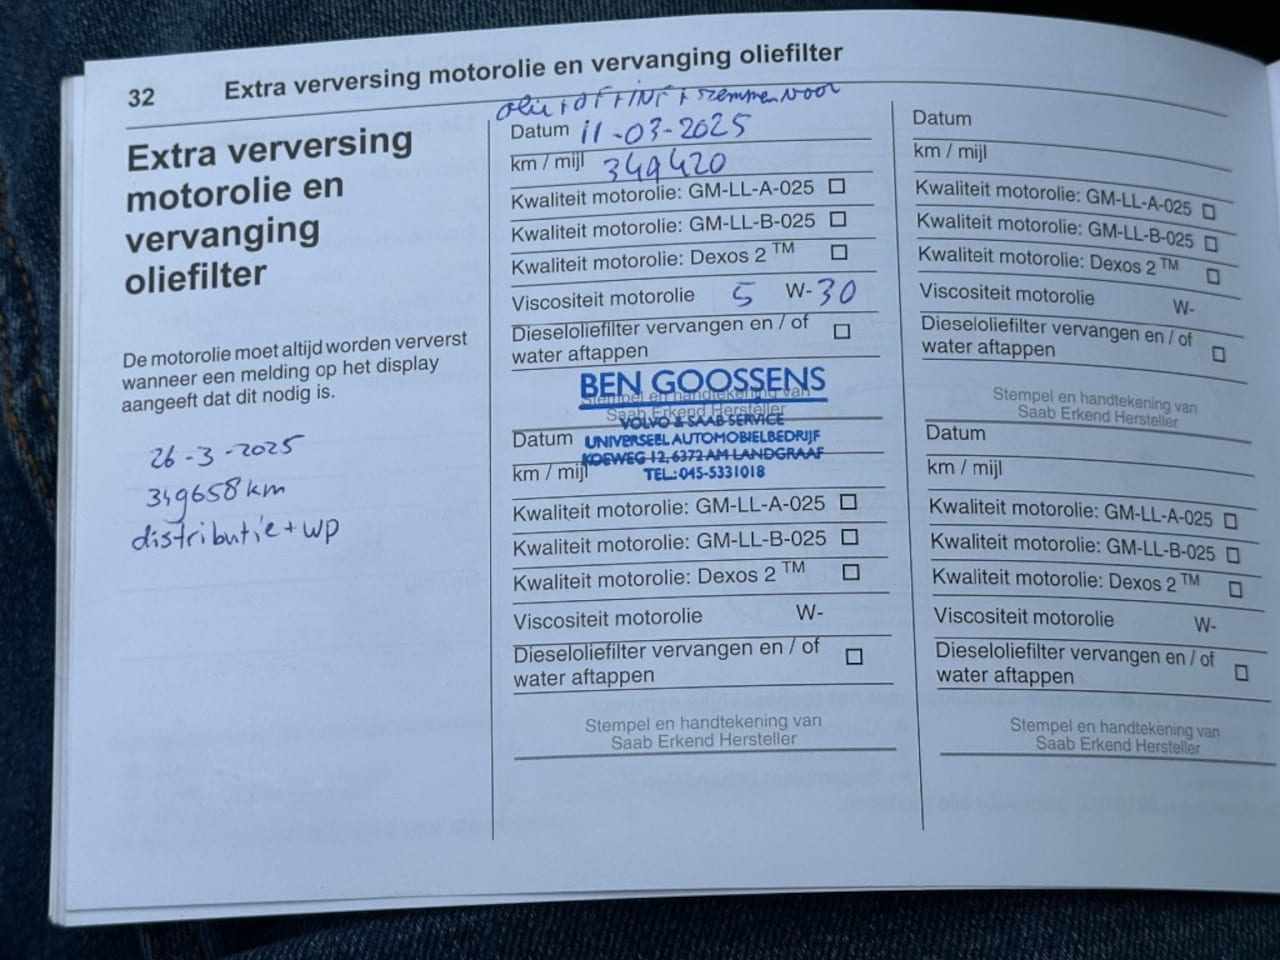 32 Extra verversing motorolie en vervanging oliefilter
Extra verversing
motorolie en
vervanging
oliefilter
De motorolie moet altijd worden ververst
wanneer een melding op het display
aangeeft dat dit nodig is.
26-3-2025
349658 km
distributie + wp
olie + OF + INF + remmen voor
Datum 11-03-2025
km / mijl 349420
Kwaliteit motorolie: GM-LL-A-025 ☐
Kwaliteit motorolie: GM-LL-B-025 ☐
Kwaliteit motorolie: Dexos 2 TM ☐
Viscositeit motorolie 5 W-30
Dieseloliefilter vervangen en / of ☐
water aftappen
BEN GOOSSENS
Stempel en handtekening van
Saab Erkend Hersteller
VOLVO & SAAB SERVICE
UNIVERSEEL AUTOMOBIELBEDRIJF
KOEWEG 12, 6372 AM LANDGRAAF
TEL.: 045-5331018
Datum
km / mijl
Kwaliteit motorolie: GM-LL-A-025 ☐
Kwaliteit motorolie: GM-LL-B-025 ☐
Kwaliteit motorolie: Dexos 2 TM ☐
Viscositeit motorolie W-
Dieseloliefilter vervangen en / of ☐
water aftappen
Stempel en handtekening van
Saab Erkend Hersteller
Datum
km / mijl
Kwaliteit motorolie: GM-LL-A-025 ☐
Kwaliteit motorolie: GM-LL-B-025 ☐
Kwaliteit motorolie: Dexos 2 TM ☐
Viscositeit motorolie W-
Dieseloliefilter vervangen en / of ☐
water aftappen
Stempel en handtekening van
Saab Erkend Hersteller
Datum
km / mijl
Kwaliteit motorolie: GM-LL-A-025 ☐
Kwaliteit motorolie: GM-LL-B-025 ☐
Kwaliteit motorolie: Dexos 2 TM ☐
Viscositeit motorolie W-
Dieseloliefilter vervangen en / of ☐
water aftappen
Stempel en handtekening van
Saab Erkend Hersteller